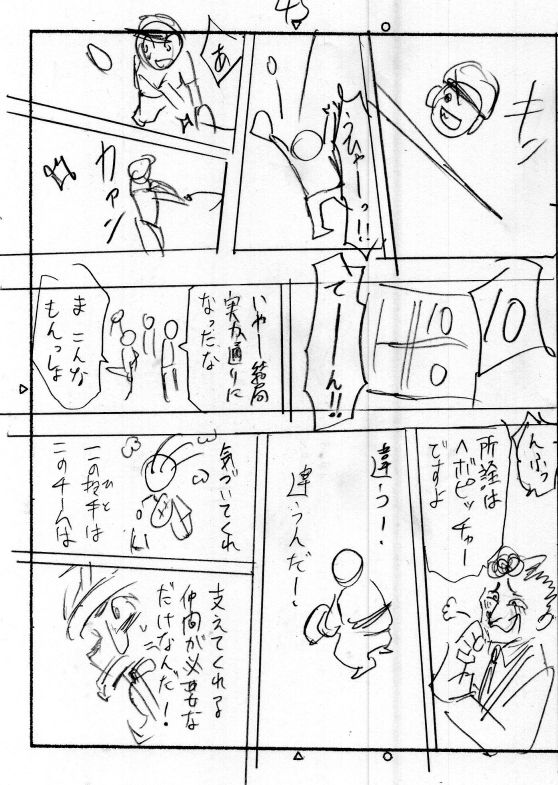 43
キン
うひゃーっ!!
あ
カァン
10
10
0
てーーん!!
いやー結局
実力通りに
なったな
ま こんな
もんっしょ
んふっ
所詮は
ヘボピッチャー
ですよ
違う!
違うんだー!
気づいてくれ
この投手は
ひと
このチームは
支えてくれる
仲間が必要な
だけなんだ!